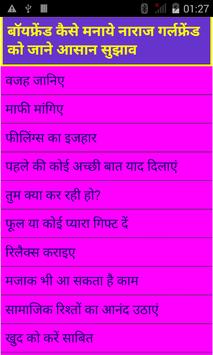 01:27
बॉयफ्रेंड कैसे मनाये नाराज गर्लफ्रेंड
को जाने आसान सुझाव
वजह जानिए
माफी मांगिए
फीलिंग्स का इजहार
पहले की कोई अच्छी बात याद दिलाएं
तुम क्या कर रही हो?
फूल या कोई प्यारा गिफ्ट दें
रिलैक्स कराइए
मजाक भी आ सकता है काम
सामाजिक रिश्तों का आनंद उठाएं
खुद को करें साबित